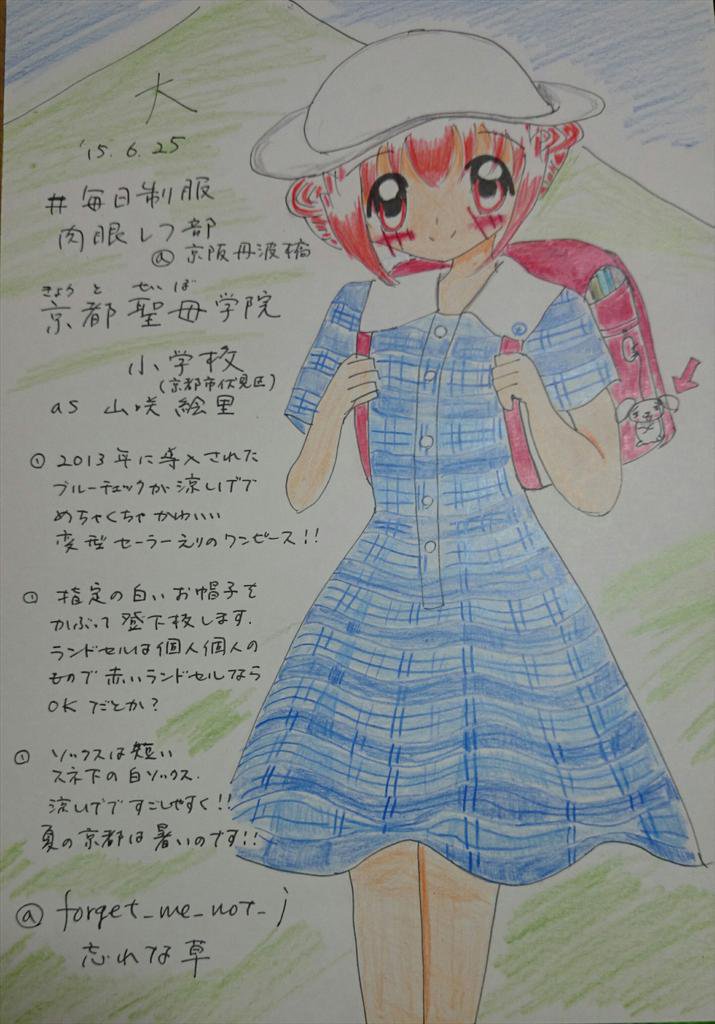 大
'15. 6. 25
# 毎日制服
肉眼レフ部
@ 京阪丹波橋
きょうと せいぼ
京都聖母学院
小学校
(京都市伏見区)
as 山咲絵里
① 2013年に導入された
ブルーチェックが涼しげで
めちゃくちゃかわいい
変型セーラーえりのワンピース!!
① 指定の白いお帽子を
かぶって登下校します.
ランドセルは個人個人の
もので赤いランドセルなら
OKだとか?
① ソックスは短い
スネ下の白ソックス.
涼しげですごしやすく!!
夏の京都は暑いのです!!
@ forget_me_not_j
忘れな草